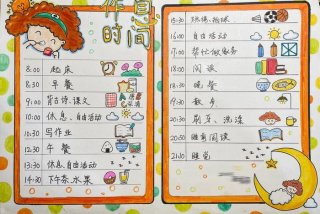 作息
时间
8:00 起床
8:30 早餐
9:00 背古诗、课文
10:00 休息、自由活动
10:30 写作业
12:30 午餐
13:30 休息、自由活动
14:30 下午茶、水果
15:30 跳绳、拍球
16:30 自由活动
17:00 帮忙做家务
18:00 阅读
18:30 晚餐
19:30 散步
20:30 刷牙、洗漱
20:50 睡前阅读
21:30 睡觉